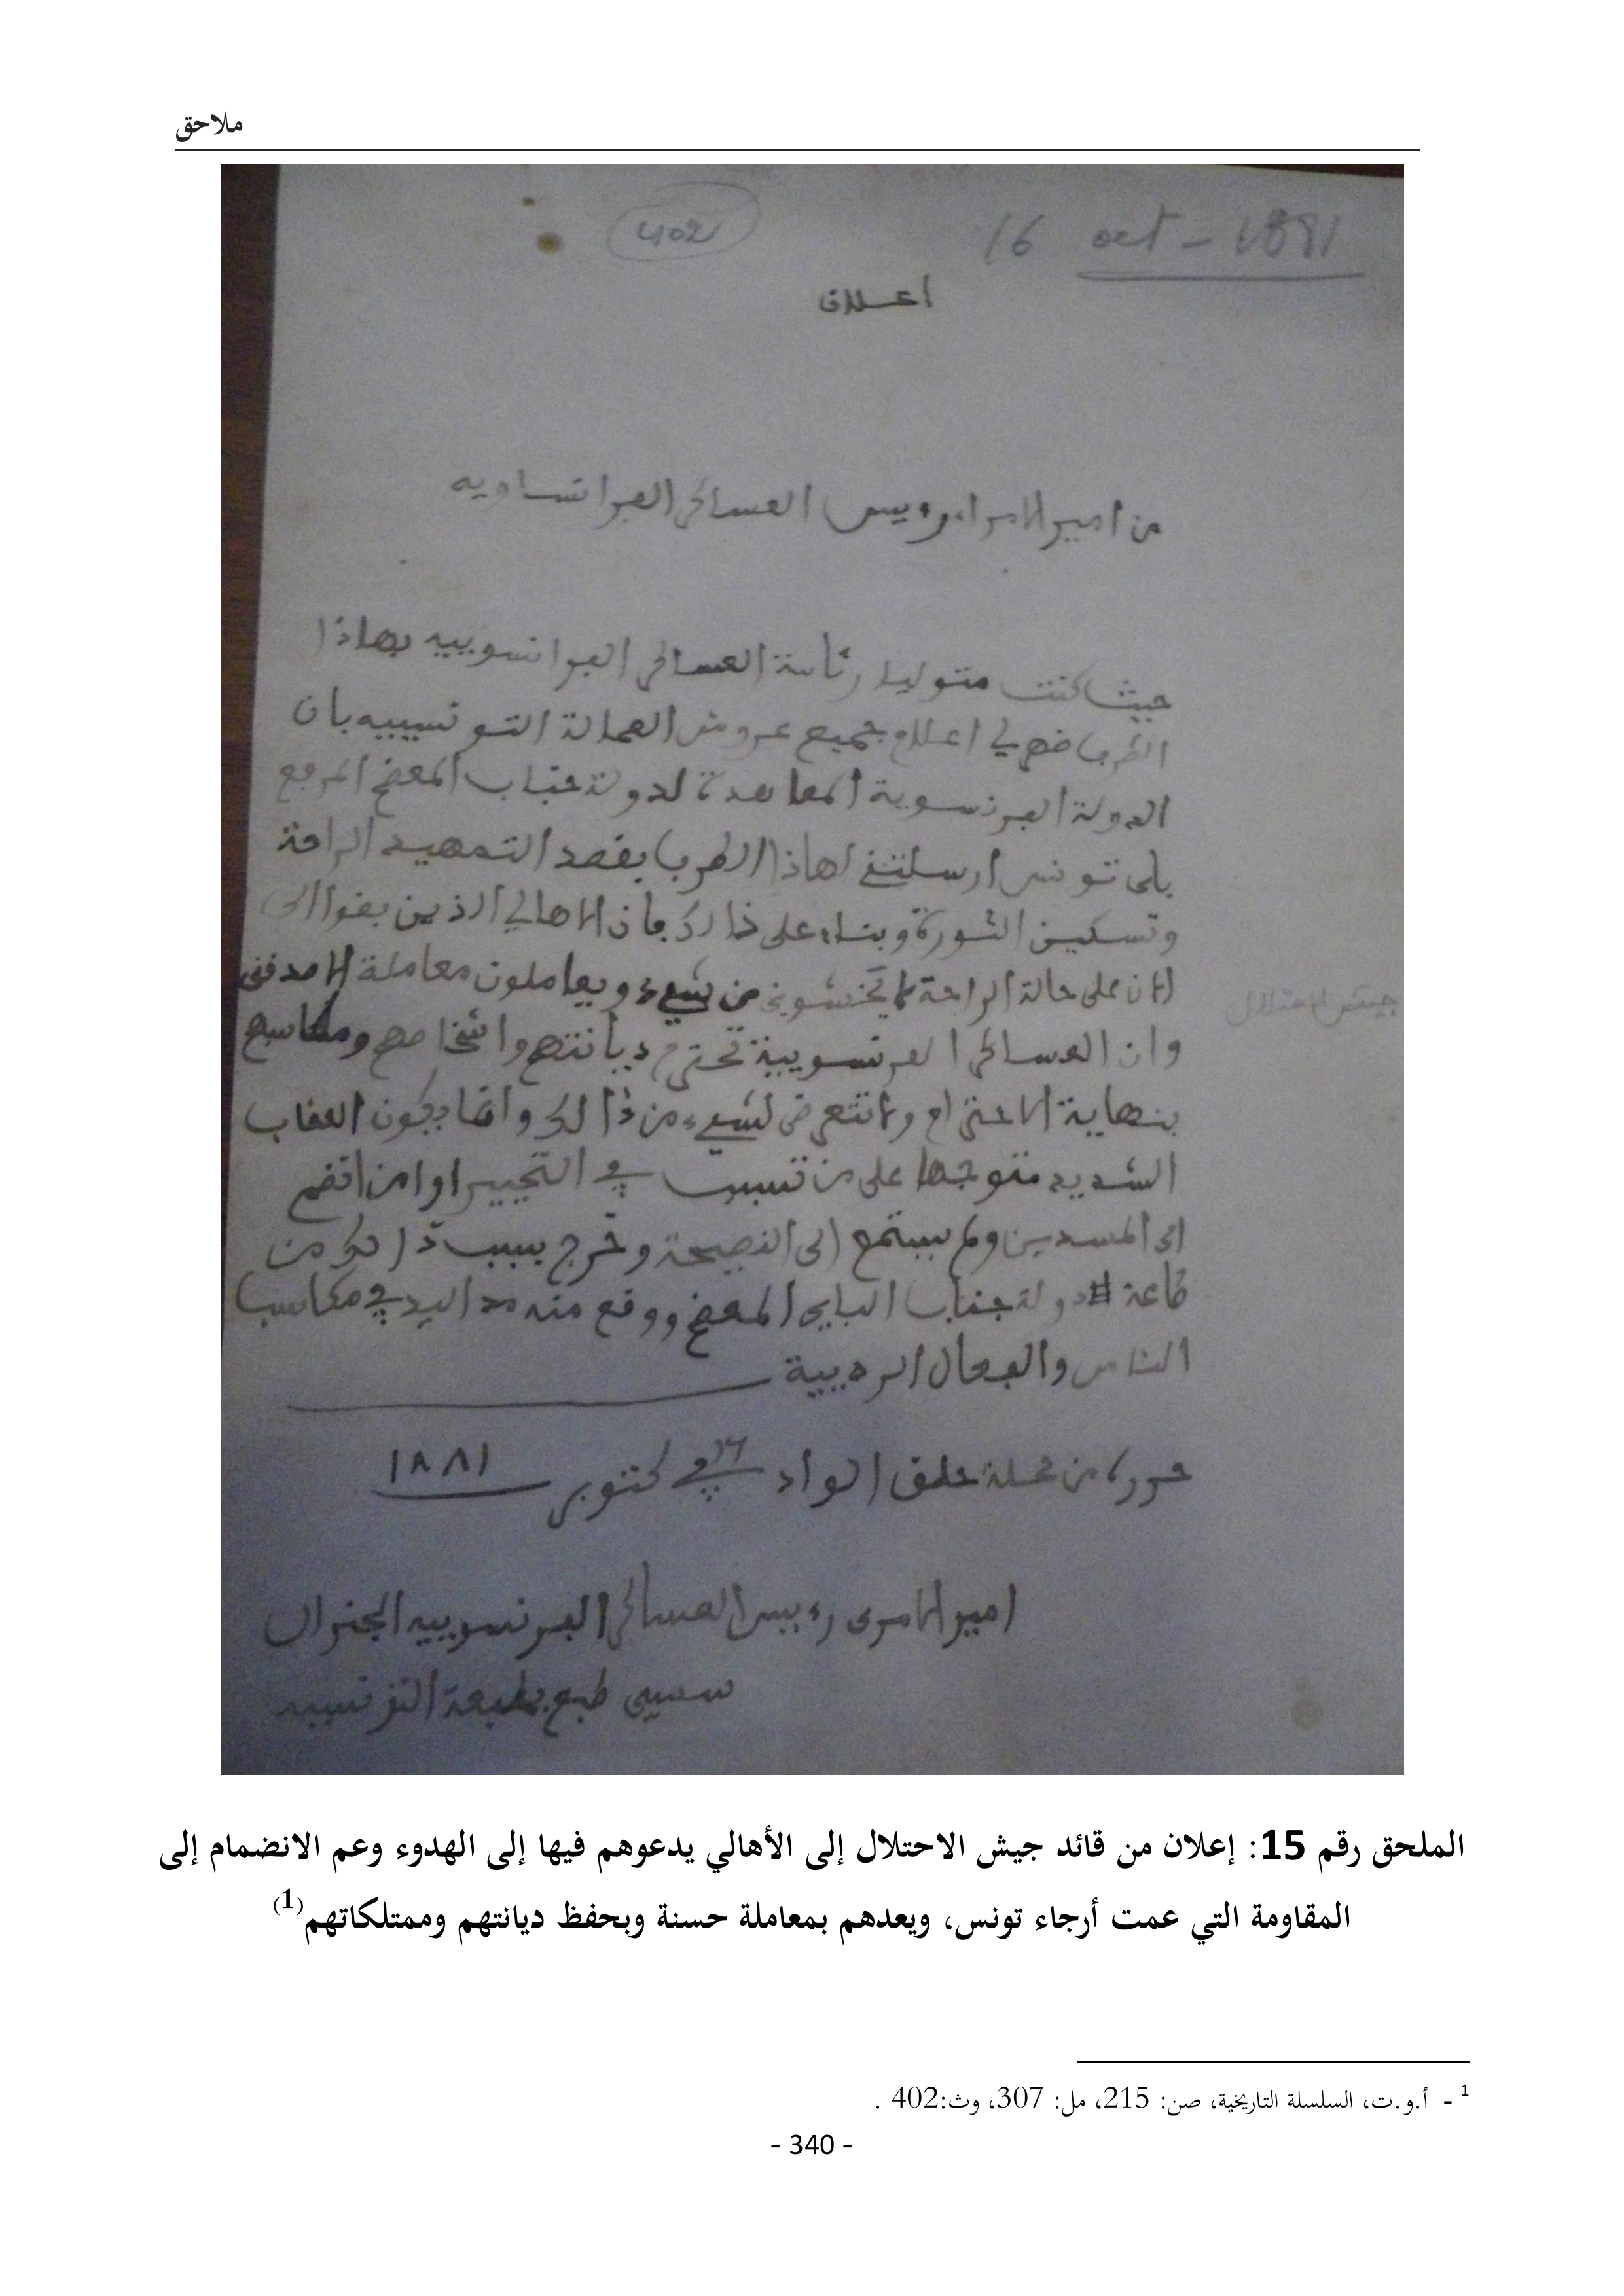 ملاحق
16 oct - 1881
402
اعلان
من امير الامراء رءيس العساكر الفرانساويه
حيث كنت متوليا رئاسة العساكر الفرانسوييه بهاذا
الطرف في اعلام جميع عروش العمالة التونسييه بان
الدولة الفرنسوية المعاهدة لدولة جناب المعظم المرفع
باي تونس ارسلتني لهاذا الطرف بقصد التمهيد الراحة
وتسكين الثورة وبناء على ذالك فان الاهالي الذين بقوا الى
الان على حالة الراحة لا يخشون من شيء ويعاملون معاملة الاصدقى
وان العساكر الفرنسويية تحترم ديانتهم واشخاصهم ومكاسبهم
بنهاية الاحترام ولا تتعرض لشيء من ذالك وانما يكون العقاب
الشديد متوجها على من تسبب في التحيير او امن انضم
الى المفسدين ولم يستمع الى النصيحة وخرج بسبب ذالك من
طاعة دولة جناب الباي المعظم ووقع منه مد اليد في مكاسب
الناس والفعال الرديية
جيش الاحتلال
حرر من محلة حلق الواد في ١٦ اكتوبر ١٨٨١
امير الامرى رءيس العساكر الفرنسوييه الجنرال
سسيي طبع بمطبعة التونسييه
الملحق رقم 15: إعلان من قائد جيش الاحتلال إلى الأهالي يدعوهم فيها إلى الهدوء وعم الانضمام إلى
المقاومة التي عمت أرجاء تونس، ويعدهم بمعاملة حسنة وبحفظ ديانتهم وممتلكاتهم(1)
1 - أ.و.ت، السلسلة التاريخية، صن: 215، مل: 307، وث:402 .
- 340 -